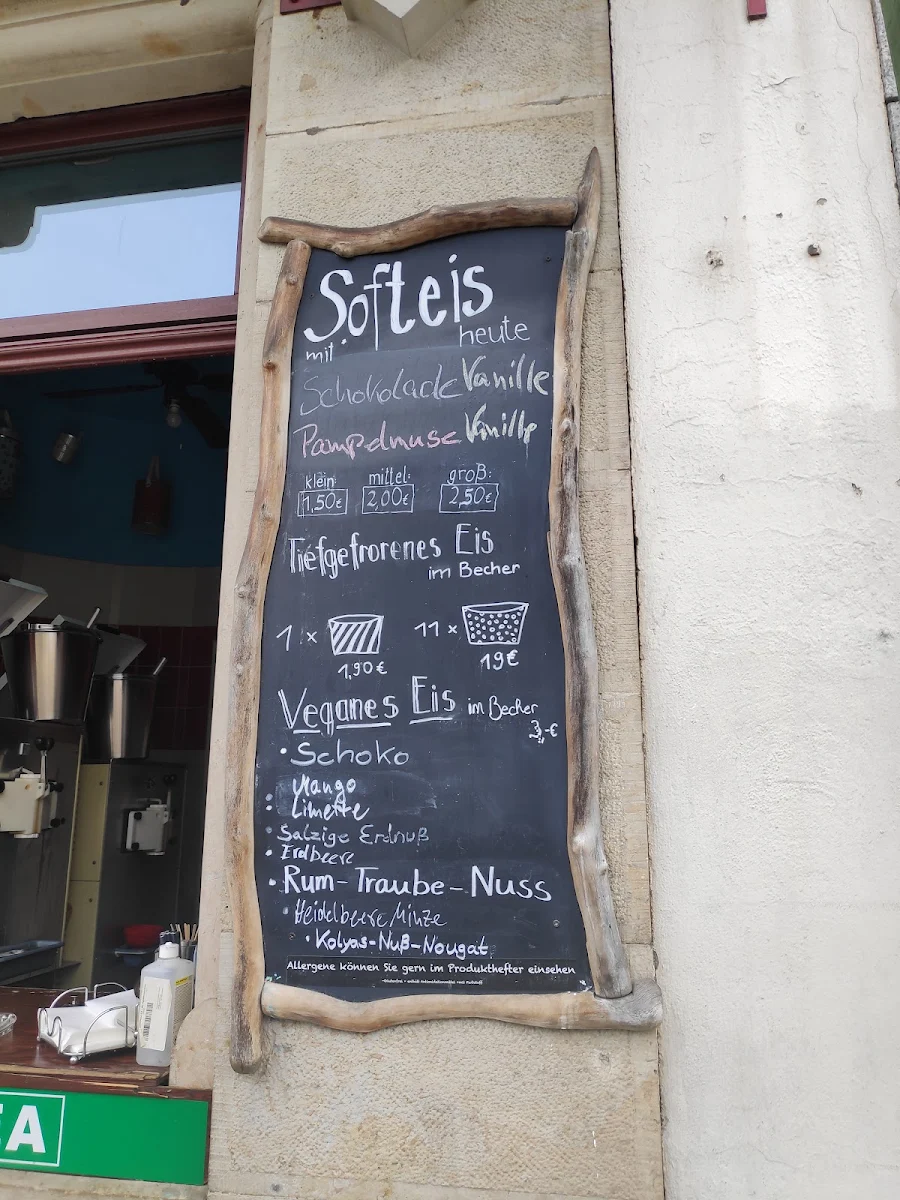 Softeis
mit heute
Schokolade Vanille
Pampelmuse Vanille
klein: mittel: groß:
1,50€ 2,00€ 2,50€
Tiefgefrorenes Eis
im Becher
1 x 11 x
1,90€ 19€
Veganes Eis im Becher
3,-€
• Schoko
Mango
• Limette
• Salzige Erdnuß
• Erdbeere
• Rum-Traube-Nuss
• Heidelbeere Minze
• Kolyas-Nuß-Nougat
Allergene können Sie gern im Produkthefter einsehen
EA